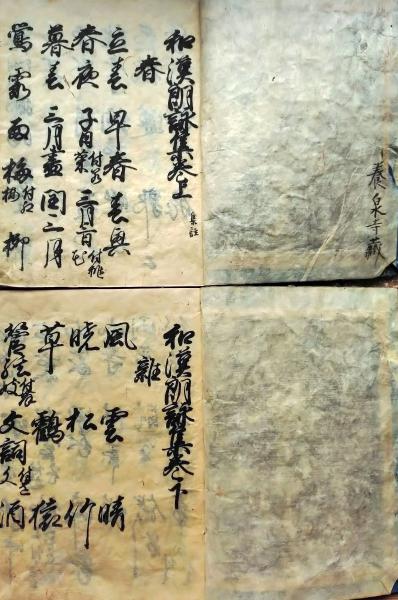 養泉寺藏
和漢朗詠集巻上
集註
春
立春 早春 春興
春夜 子日付若菜 三月三日付桃
暮春 三月盡 閏三月
鶯 霞 雨 梅付紅梅 柳
和漢朗詠集巻下
雜
風 雲 晴
暁 松 竹
草 鶴 猿
管絃 文詞 酒